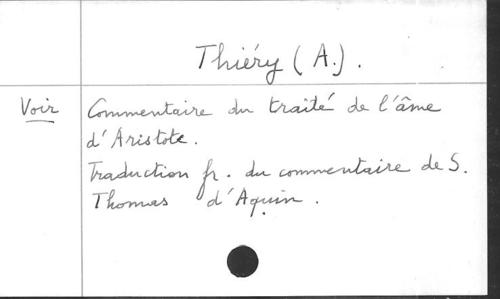 Thiéry (A.).
Voir Commentaire du traité de l'âme
d'Aristote.
Traduction fr. du commentaire de S.
Thomas d'Aquin.